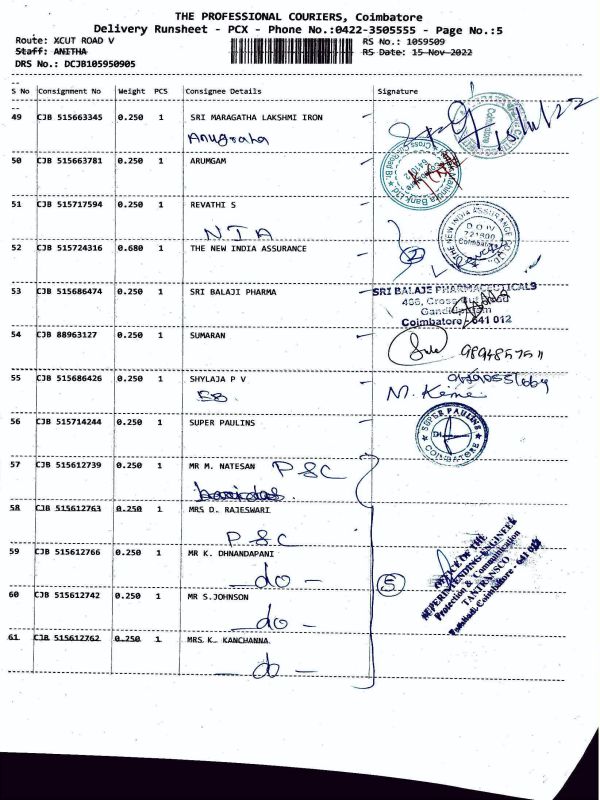 THE PROFESSIONAL COURIERS, Coimbatore
Delivery Runsheet - PCX - Phone No.:0422-3505555 - Page No.:5
Route: XCUT ROAD V RS No.: 1059509
Staff: ANITHA RS Date: 15 Nov 2022
DRS No.: DCJB105950905
S No Consignment No Weight PCS Consignee Details Signature
49 CJB 515663345 0.250 1 SRI MARAGATHA LAKSHMI IRON
Anugraha
15/11/22
50 CJB 515663781 0.250 1 ARUMGAM
51 CJB 515717594 0.250 1 REVATHI S
NIA
52 CJB 515724316 0.680 1 THE NEW INDIA ASSURANCE
2
THE NEW INDIA ASSURANCE CO.
D O IV
721600
Coimbatore
53 CJB 515686474 0.250 1 SRI BALAJI PHARMA
SRI BALAJE PHARMACEUTICALS
Coimbatore - 641 012
54 CJB 88963127 0.250 1 SUMARAN
55 CJB 515686426 0.250 1 SHYLAJA P V
56 CJB 515714244 0.250 1 SUPER PAULINS
SUPER PAULINS
COIMBATORE
57 CJB 515612739 0.250 1 MR M. NATESAN PSC
58 CJB 515612763 0.250 1 MRS D. RAJESWARI
PSC
59 CJB 515612766 0.250 1 MR K. DHNANDAPANI
- do -
5
OFFICE OF THE
SUPERINTENDING ENGINEER
Protection & Communication
TANTRANSCO
Tatabad, Coimbatore - 641 012
60 CJB 515612742 0.250 1 MR S.JOHNSON
- do -
61 CJB 515612762 0.250 1 MRS. K. KANCHANNA
- do -